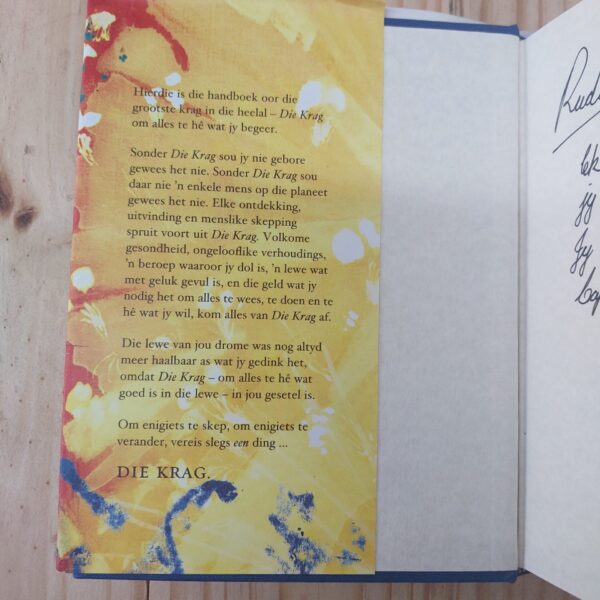 Hierdie is die handboek oor die
grootste krag in die heelal – Die Krag
om alles te hê wat jy begeer.
Sonder Die Krag sou jy nie gebore
gewees het nie. Sonder Die Krag sou
daar nie 'n enkele mens op die planeet
gewees het nie. Elke ontdekking,
uitvinding en menslike skepping
spruit voort uit Die Krag. Volkome
gesondheid, ongelooflike verhoudings,
'n beroep waaroor jy dol is, 'n lewe wat
met geluk gevul is, en die geld wat jy
nodig het om alles te wees, te doen en te
hê wat jy wil, kom alles van Die Krag af.
Die lewe van jou drome was nog altyd
meer haalbaar as wat jy gedink het,
omdat Die Krag – om alles te hê wat
goed is in die lewe – in jou gesetel is.
Om enigiets te skep, om enigiets te
verander, vereis slegs een ding ...
DIE KRAG.
jy